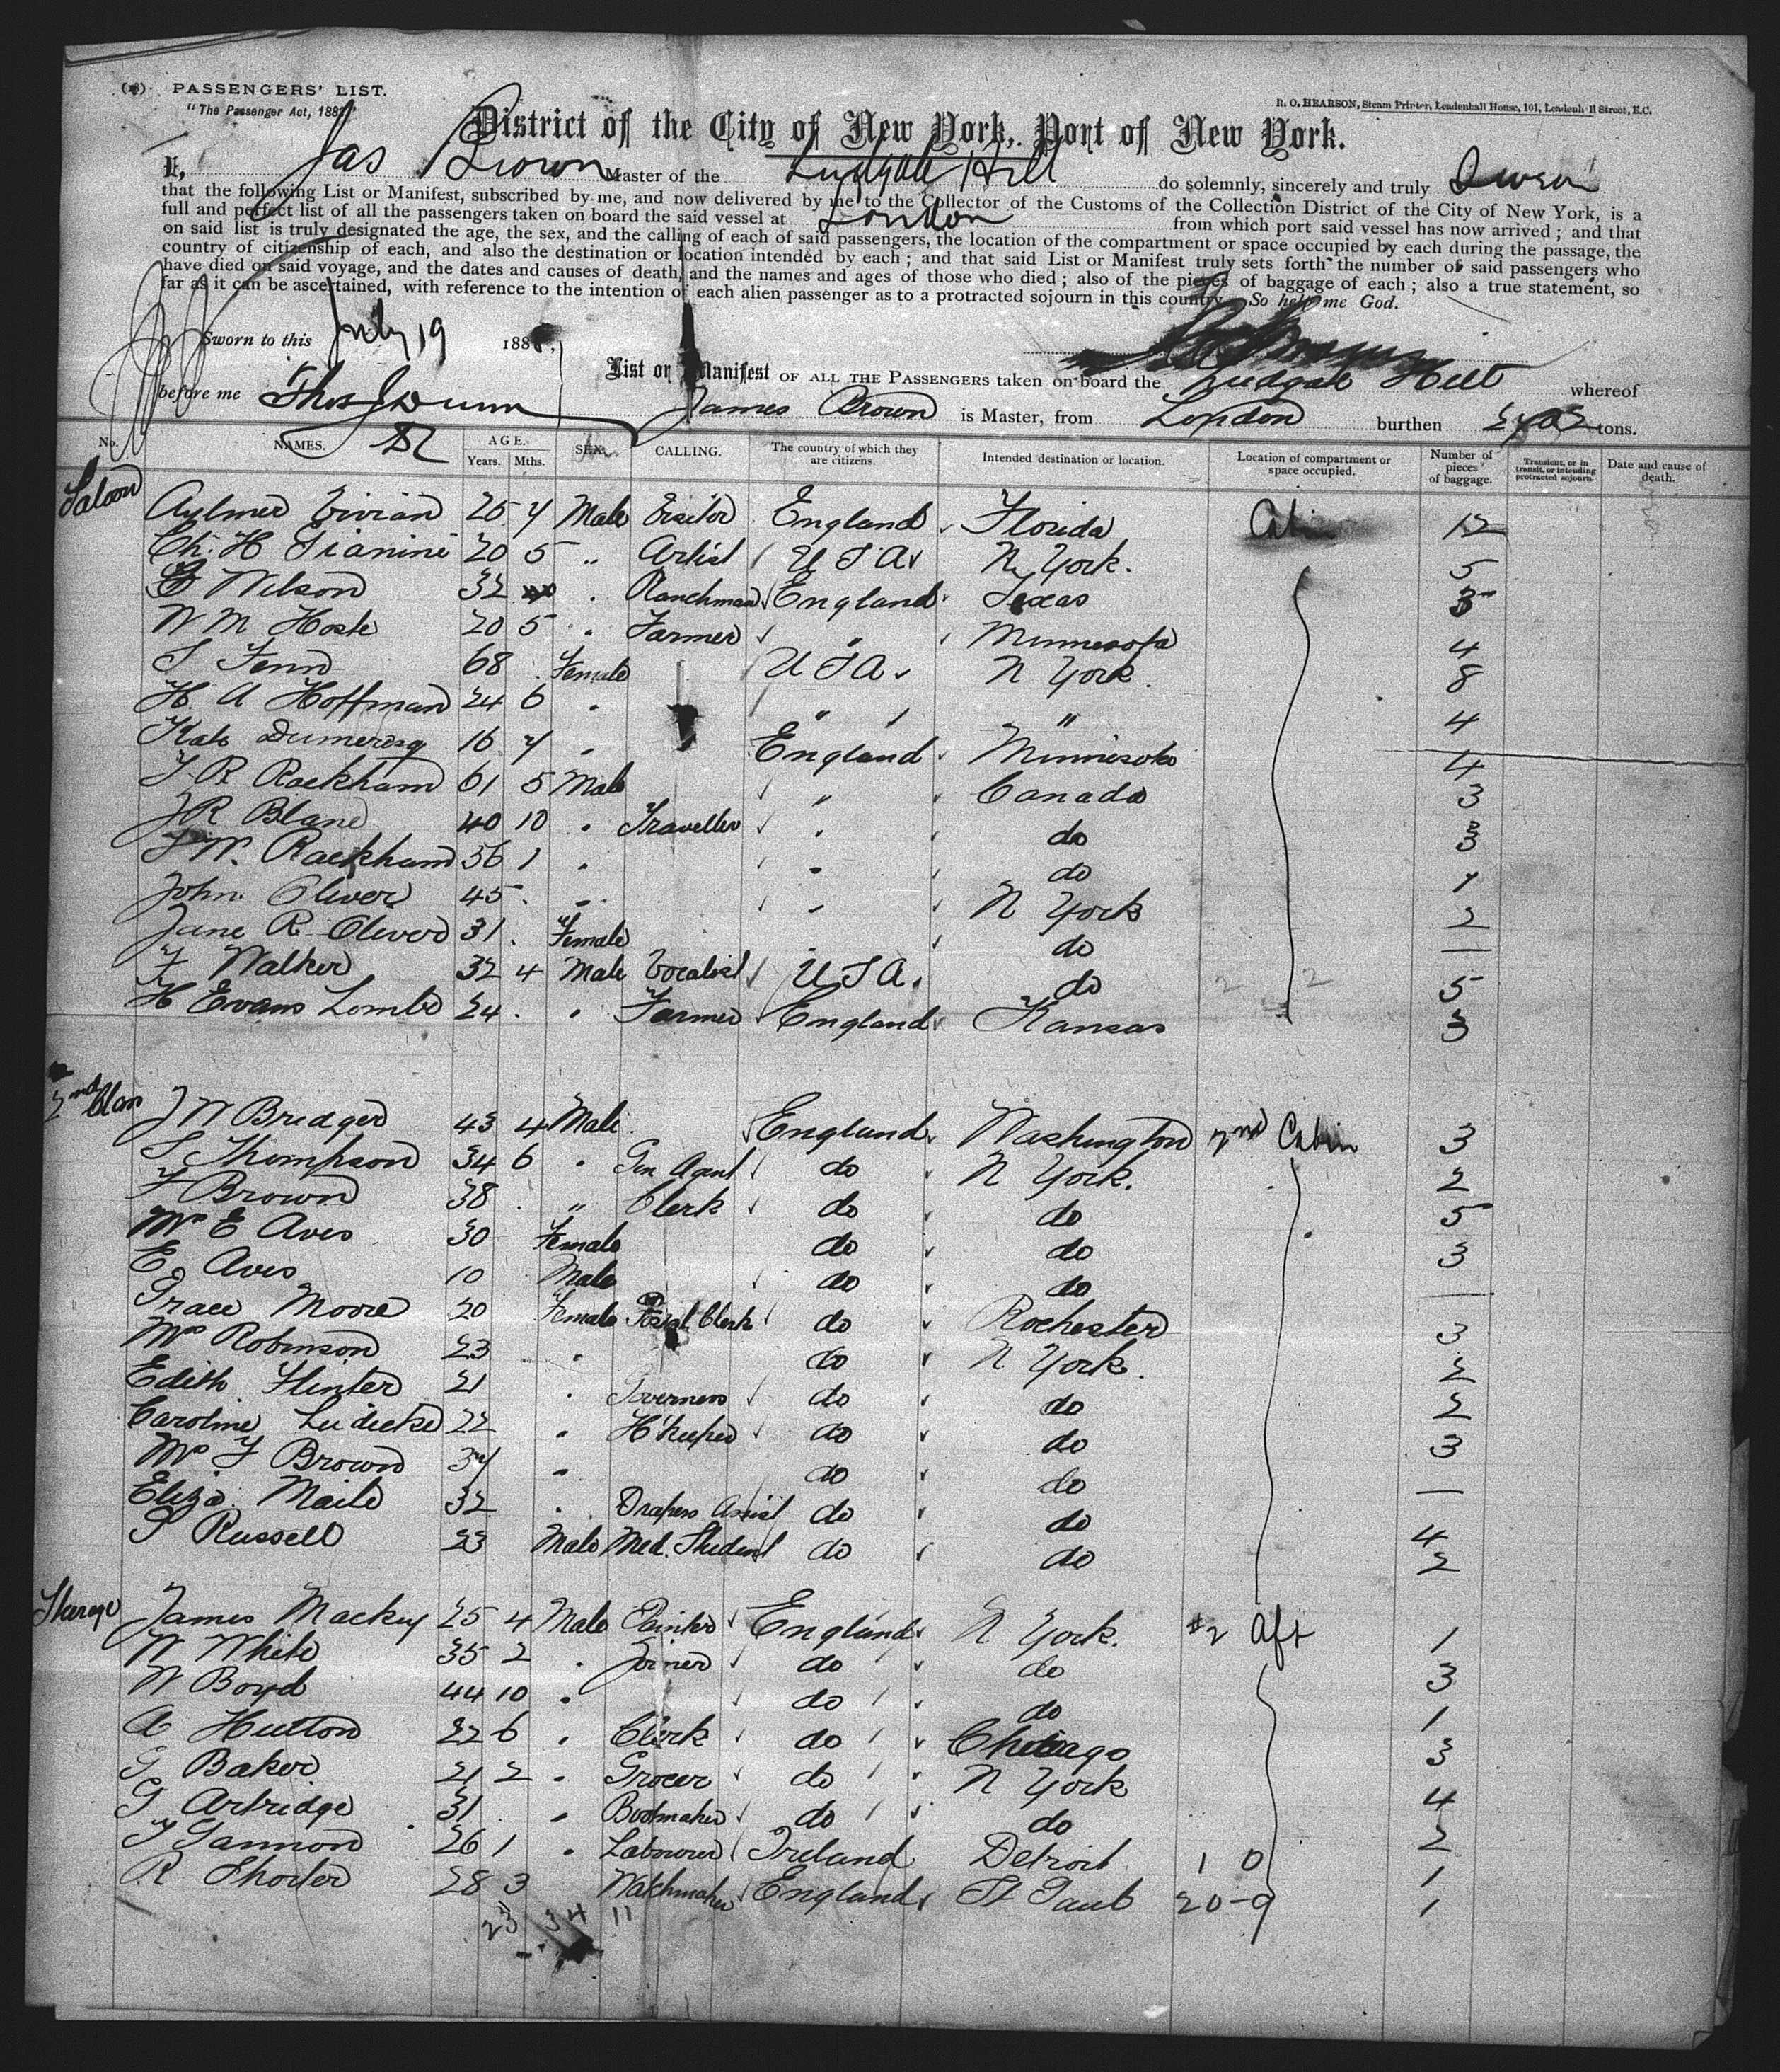 PASSENGERS' LIST.
"The Passenger Act, 1882."
R. O. HEARSON, Steam Printer, Leadenhall House, 101, Leadenhall Street, E.C.
District of the City of New York, Port of New York.
I, Jas Brown Master of the Ludgate Hill do solemnly, sincerely and truly Swear
that the following List or Manifest, subscribed by me, and now delivered by me to the Collector of the Customs of the Collection District of the City of New York, is a
full and perfect list of all the passengers taken on board the said vessel at London from which port said vessel has now arrived; and that
on said list is truly designated the age, the sex, and the calling of each of said passengers, the location of the compartment or space occupied by each during the passage, the
country of citizenship of each, and also the destination or location intended by each; and that said List or Manifest truly sets forth the number of said passengers who
have died on said voyage, and the dates and causes of death, and the names and ages of those who died; also of the pieces of baggage of each; also a true statement, so
far as it can be ascertained, with reference to the intention of each alien passenger as to a protracted sojourn in this country. So help me God.
Sworn to this July 19 188
before me Thos J Dunn
List or Manifest OF ALL THE PASSENGERS taken on board the Ludgate Hill whereof
James Brown is Master, from London burthen tons.
No. NAMES. AGE. Years. Mths. SEX. CALLING. The country of which they are citizens. Intended destination or location. Location of compartment or space occupied. Number of pieces of baggage. Transient, or in transit, or intending protracted sojourn. Date and cause of death.
Saloon
Aylmer Vivian 25 7 Male Visitor England Florida Cabin 12
Ch. H Gianini 20 5 " Artist U S A N York. 5
Wilson 32 " Ranchman England Texas 3
W M Hoste 20 5 " Farmer " Minnesota 4
S Fenn 68 Female U S A N York. 8
H. A Hoffman 24 6 " " " 4
Kate Dumeresq 16 7 " England Minnesota 4
T. R. Rackham 61 5 Male " Canada 3
J R Blane 40 10 " Traveller " do 3
W. Rackham 36 1 " " do 1
John Oliver 45 " " N York 2
Jane R Oliver 31 Female do —
F Walker 32 4 Male Vocalist U S A. do 5
H Evans Lombe 24 " Farmer England Kansas 3
2nd Class
J W Bridger 43 4 Male England Washington 2nd Cabin 3
S Thompson 34 6 " Gen Agent do N York. 2
F Brown 38 " Clerk do do 5
Mrs E Aves 30 Female do do 3
E Aves 10 Male do do —
Grace Moore 20 Female Postal Clerk do Rochester 3
Mrs Robinson 23 " do N York. 2
Edith Flinter 21 " Governess do do 2
Caroline Ludecke 22 " H'keeper do do 3
Mrs F Brown 37 " do do —
Eliza Maile 32 " Drapers Assist do do 4
Russell 23 Male Med. Student do do 2
Steerage
James Mackey 25 4 Male Painter England N York. #2 Aft 1
W White 35 2 " Joiner do do 3
W Boyd 44 10 " do do 1
A Hutton 22 6 " Clerk do Chicago 3
G Baker 21 2 " Grocer do N York 4
G Artridge 31 " Bootmaker do do 2
T Gannon 26 1 " Labourer Ireland Detroit 1 0 1
R Shorter 28 3 Watchmaker England St Paul 20-9 1
23 34 11